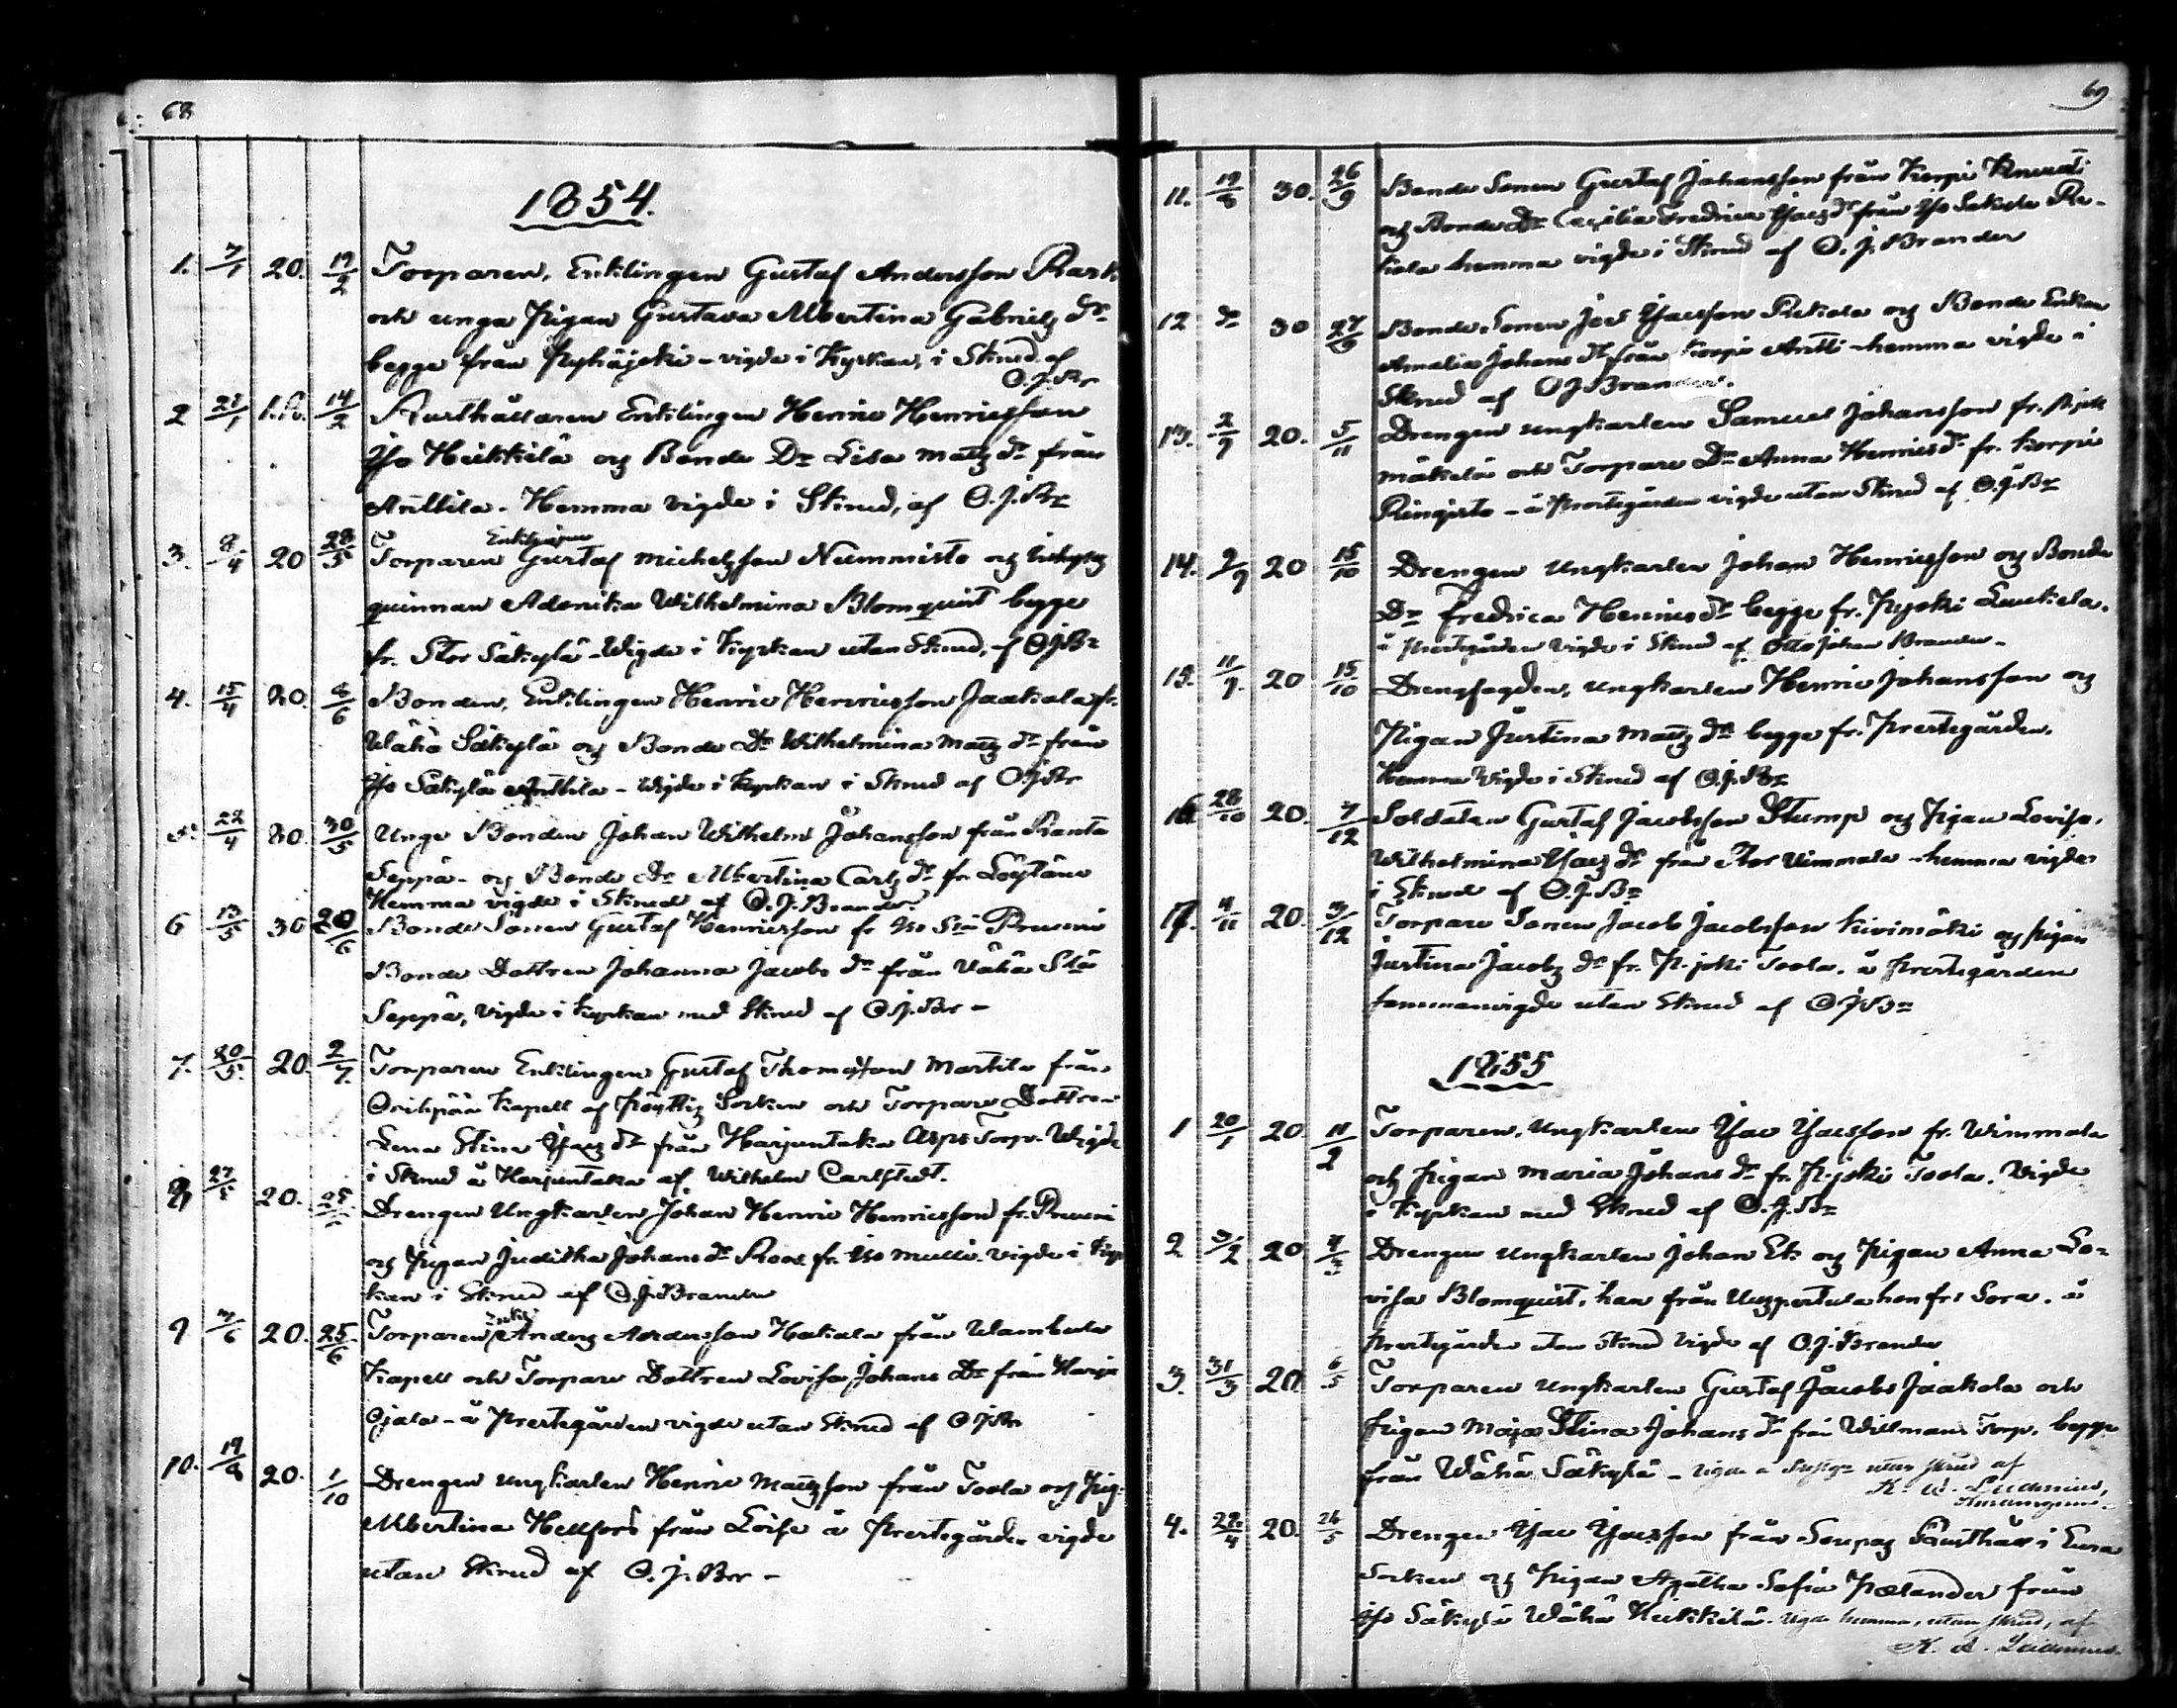 68
1854.
1. 7/1 20. 19/2 Torparen, Enklingen Gustaf Andersson Rask
och unga Pigan Gustava Albertina Gabriels Dr
begge från Pyhäjoki - vigde i Kyrkan, i Skrud af
O.J.Br
2 28/1 14/2 Rusthållaren Enklingen Henric Henricsson
Iso Heikkilä og Bonde Dr Lisa Matts dr från
Anttila. Hemma vigde i Skrud, af O.J.Br
Enklingen
3. 8/4 20 28/5 Torparen Gustaf Michelsson Nummisto og
quinnan Adonika Wilhelmina Blomquist begge
fr. Stor Säkylä - Wigde i Kyrkan utan Skrud, af OJBr
4. 15/4 20. 8/6 Bonden, Enklingen Henric Henricsson Jaakola fr.
Wähä Säkylä og Bonde Dr Wilhelmina Matts dr från
Iso Säkylä Anttila - Wigde i Kyrkan i Skrud af OJBr
5. 22/4 30. 30/5 Unge Bonden Johan Wilhelm Johansson från Ranta
Seppä - og Bonde Dr Albertina Carls dr fr. Löytäne
Hemma vigde i Skrud af O.J.Brander
6 13/5 30 20/6 Bonde Sonen Gustaf Henricsson fr Iso Sä Pruuni
Bonde Dottren Johanna Jacobs dr från Vähä Sä
Seppä, vigde i Kyrkan med Skrud af O.J.Br -
7. 20/5. 20. 2/7. Torparen Enklingen Gustaf Thomasson Martila från
Oripää Kapell af Pöyttis Socken och Torpare Dottren
Lena Stina Isacs dr från Harjuntaka Asps Torp. Wigde
i Skrud å Harjuntaka af Wilhelm Carlstedt.
8 27/5 20. 25/6 Drengen Ungkarlen Johan Henric Henricsson fr. Pruuni
og Pigan Juditha Johans dr Roos fr. Iso Mulli. vigde i Kyr
kan i Skrud af O.J.Brander
Enkl:
9 3/6 20. 25/6 Torparen Anders Andersson Hakala från Wambula
Kapell och Torpare Dottren Lovisa Johans Dr från Harju
Ojala - å Prestegården vigde utan Skrud af OJBr
10. 19/8 20. 1/10 Drengen Ungkarlen Henric Mattsson från Toola og Pig.
Albertina Hellfors från Loise å Prestegården vigde
utan Skrud af O.J.Br -
69
11. 19/8 30. 26/9 Bonde Sonen Gustaf Johansson från Korpi Knuuti
og Bonde Dr Cecilia Fredrica Isacs dr från Iso Säkylä Re-
kola hemma vigde i Skrud af O.J.Brander
12 do 30 27/9 Bonde Sonen Joel Isacsson Rekola og Bonde Enkan
Amalia Johans dr från Korpi Antti - hemma vigde i
Skrud af OJBrander.
13. 2/9 20. 5/11 Drengen Ungkarlen Samuel Johansson fr. P.joki
Mäkelä och Torpare Dr Anna Henrics dr fr. Korpi
Ringisto - å Prestegården vigde utan Skrud af O.J.Br
14. 2/9 20 15/10 Drengen Ungkarlen Johan Henricsson og Bonde
Dr Fredrica Henrics dr begge fr. Pyjoki Luukela.
å Prestegården vigde i Skrud af Otto Johan Brander -
15. 11/9. 20 15/10 Drengfogden, Ungkarlen Henric Johansson og
Pigan Justina Matts dr begge fr. Prestegården.
Hemma vigde i Skrud af O.J.Br
16. 28/10 20. 7/12 Soldaten Gustaf Jacobsson Stump og Pigan Lovisa
Wilhelmina Isacs dr från Stor Wimmala - hemma vigde
i Skrud af O.J.Br
17. 4/11 20. 3/12 Torpare Sonen Jacob Jacobsson Kivimäki og Pigan
Justina Jacobs dr fr. P-joki Toola. å Prestegården
sammanvigde utan Skrud af OJBr
1855
1 20/1 20 11/2 Torparen, Ungkarlen Isac Isacsson fr. Wimmala
och Pigan Maria Johans dr fr. P-joki Toola. Vigde
i Kyrkan med Skrud af O.J.Br
2 3/2 20 4/3 Drengen Ungkarlen Johan Ek og Pigan Anna Lo-
visa Blomquist. han från Uuspertula hon fr: Sora. å
Prestegården utan Skrud vigde af O.J.Brander
3. 31/3 20 6/5 Torparen Ungkarlen Gustaf Jacobs Jaakola och
Pigan Maja Stina Johans dr från Willmans Torp. begge
från Wähä Säkylä - utan skrud af
4. 28/4 20. 26/5 Drengen Isac Isacsson från Rusthåll i Eura
Socken og Pigan Agatha Sofia Pælander från
Iso Säkylä Wähä Heikkilä. vigde hemma, utan skrud, af